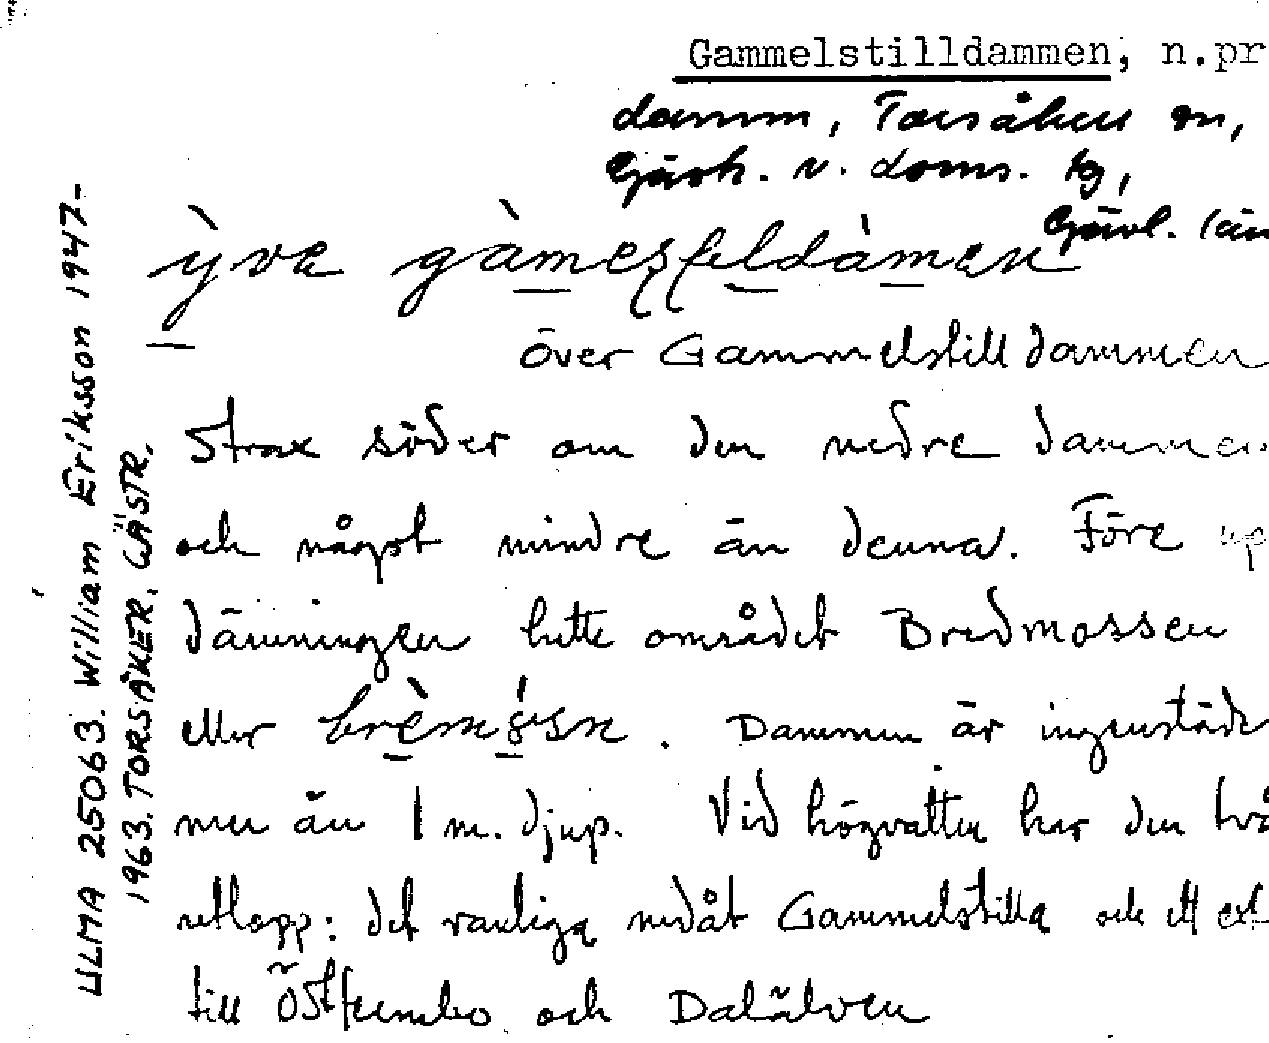 Gammelstilldammen, n.pr
damm, Torsåkers sn,
Gästr. v. doms. lg,
Gävl. län
över Gammelstilldammen
Strax söder om den nedre dammen
och något mindre än denna. Före up
dämningen hette området Bredmossen
eller brèmósn. Dammen är ingenstäde
mer än 1 m. djup. Vid högvatten har den två
utlopp: det vanliga nedåt Gammelstilla och ett ext
till Österfärnebo och Dalälven
ULMA 25063. William Eriksson 1947-
1963. TORSÅKER. GÄSTR.